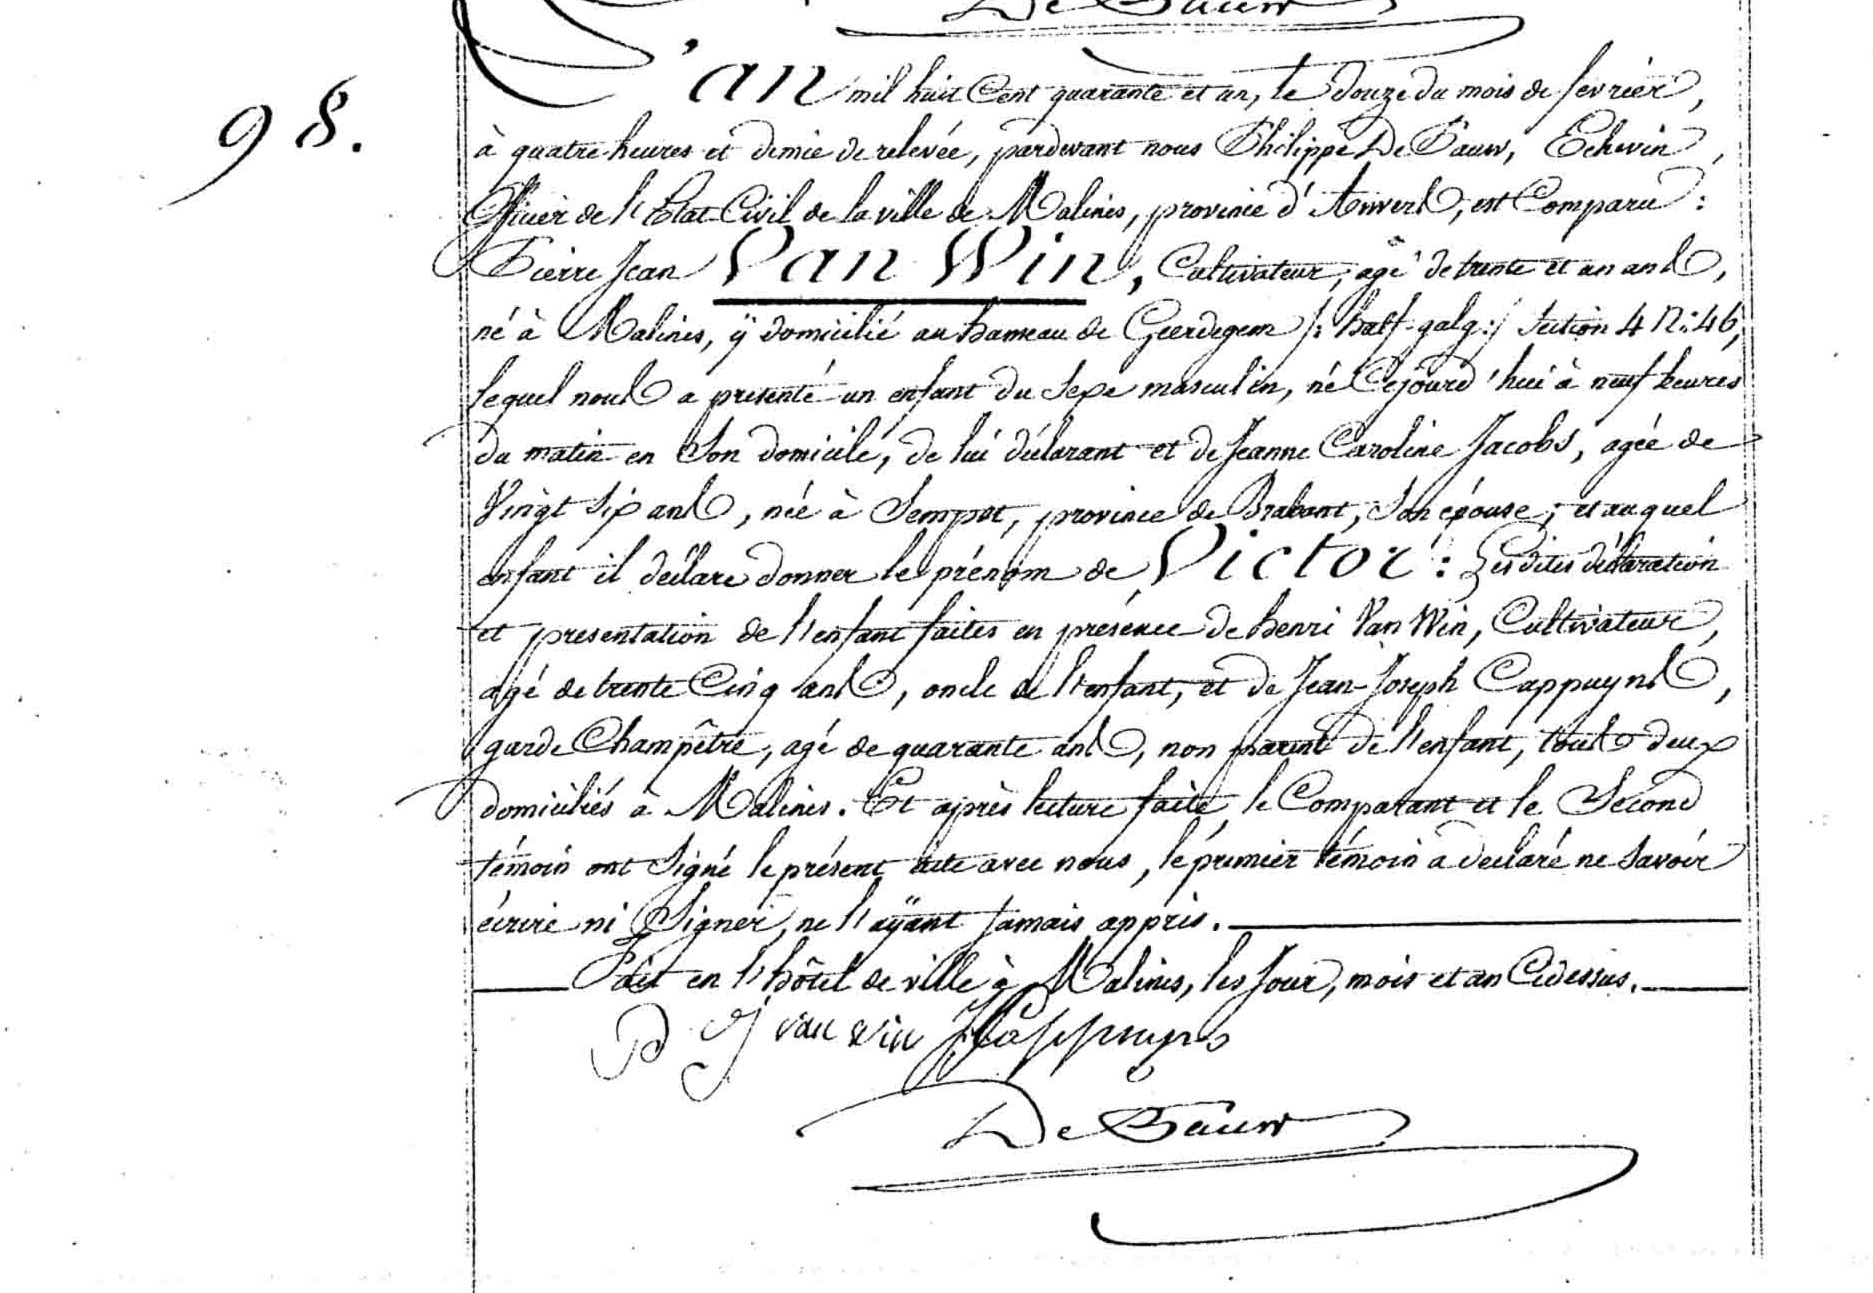 De Pauw
98.
L'an mil huit Cent quarante et un, le douze du mois de fevrier,
à quatre heures et demie de relevée, pardevant nous Philippe De Pauw, Echevin,
Officier de l'Etat Civil de la ville de Malines, province d'Anvers, est Comparu :
Pierre Jean Van Win, Cultivateur, agé de trente et un ans,
né à Malines, ÿ domicilié au hameau de Geerdegem /: half-galg:/ Section 4 N: 46,
lequel nous a presenté un enfant du Sexe masculin, né Cejourd'hui à neuf heures
du matin en Son domicile, de lui déclarant et de Jeanne Caroline Jacobs, agée de
Vingt Six ans, née à Sempst, province de Brabant, Son épouse ; et auquel
enfant il déclare donner le prénom de Victor : Lesdites déclaration
et presentation de l'enfant faites en présence de henri Van Win, Cultivateur,
agé de trente Cinq ans, oncle de l'enfant, et de Jean-Joseph Cappuyns,
garde Champêtre, agé de quarante ans, non parent de l'enfant, tous deux
domiciliés à Malines. Et après lecture faite, le Comparant et le Second
témoin ont Signé le présent acte avec nous, le prémier témoin a declaré ne Savoir
écrire ni Signer, ne l'aÿant Jamais appris.
Fait en l'hôtel de ville à Malines, les Jour, mois et an Cidessus.
P J van win JJCappuyns
De Pauw